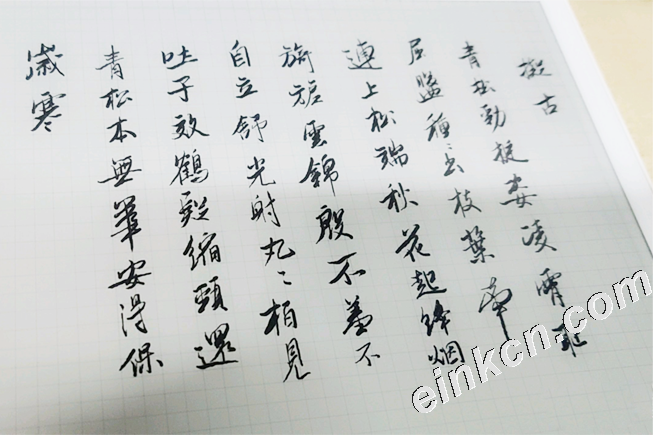 擬古
青松勁挺姿凌霄恥
屈盤種〻出枝葉牽
連上松端秋花起絳烟
旖旎雲錦殷不羞不
自立舒光射丸〻柏見
吐子效鶴疑縮頸還
青松本無華安得保
歲寒
einkcn.com